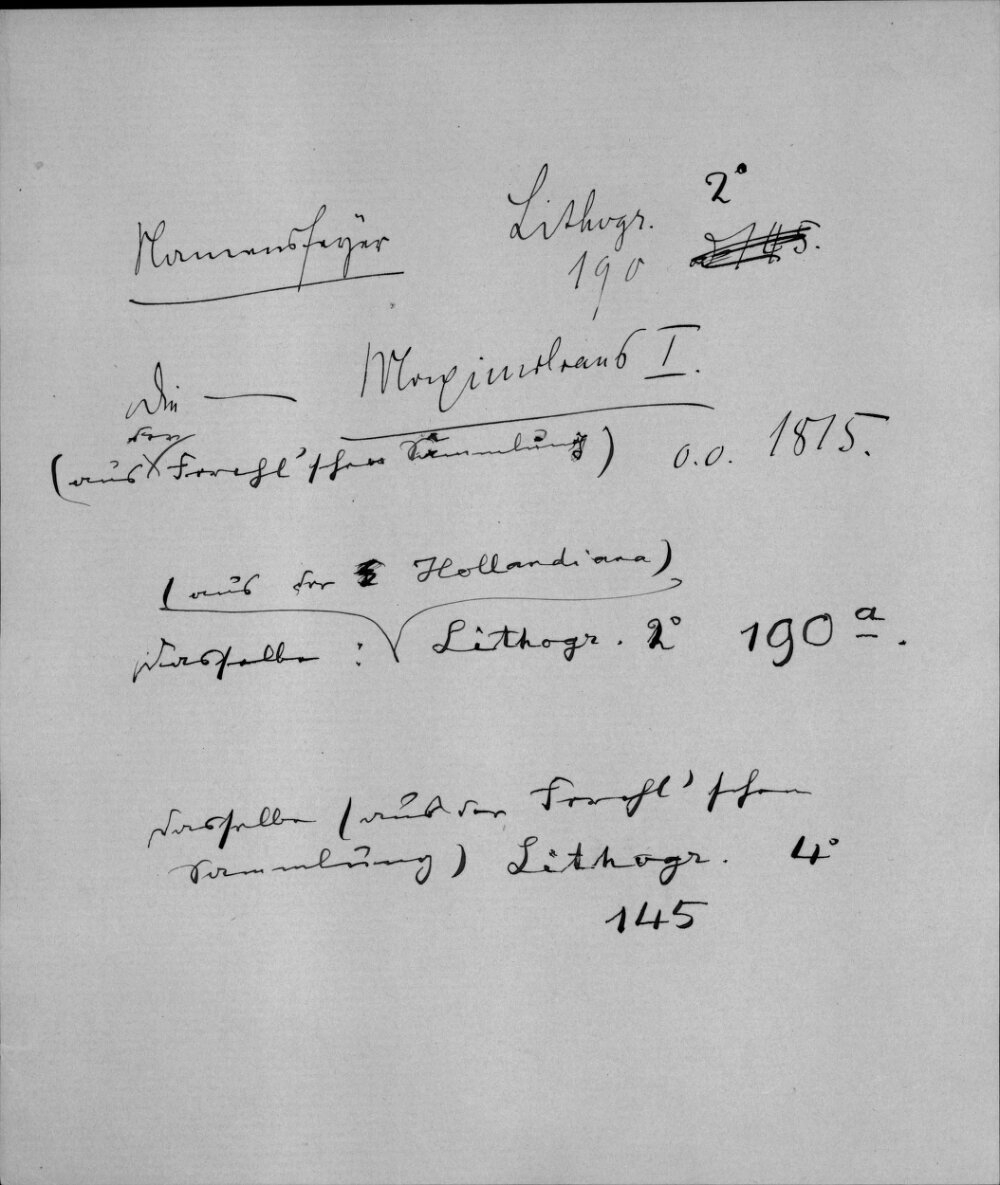 Namensfeyer Lithogr. 2°
190
Die — Maximilians I.
(aus der Ferchl'schen Sammlung) o. o. 1815.
(aus der Hollandiana)
dasselbe : Lithogr. 2° 190 a.
dasselbe (aus der Ferchl'schen
Sammlung) Lithogr. 4°
145